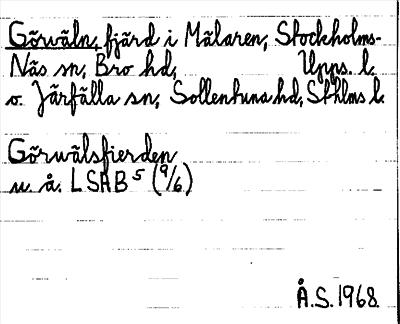 Görväln, fjärd i Mälaren, Stockholms-
Näs sn, Bro hd, Upps. l.
o. Järfälla sn, Sollentuna hd, Sthlms l.
Görwälsfierden
u. å. LSAB 5 (9/6)
Å.S. 1968.